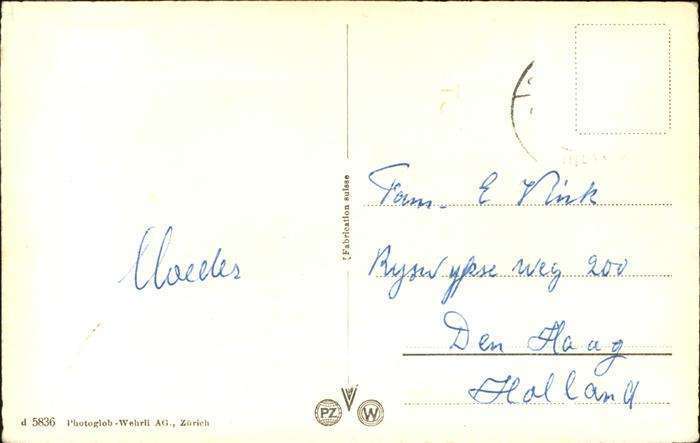 Moeder
Fam. E Vink
Ryswykse weg 200
Den Haag
Holland
Fabrication suisse
PZ W
d 5836 Photoglob-Wehrli AG., Zürich